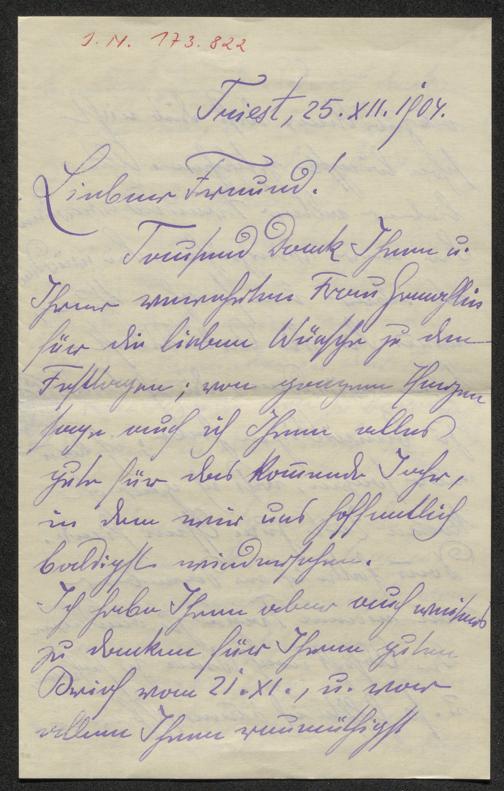 J. N. 173.822
Triest, 25. XII. 1904.
Lieber Freund!
Tausend Dank Ihnen u.
Ihrer verehrten Frau Gemahlin
für die lieben Wünsche zu den
Festtagen; von ganzem Herzen
sage auch ich Ihnen alles
gute für das kommende Jahr,
in dem wir uns hoffentlich
baldigst wiedersehen.
Ich habe Ihnen aber auch
zu danken für Ihren guten
Brief vom 21. XI., u. vor
allem Ihnen reumüthigst